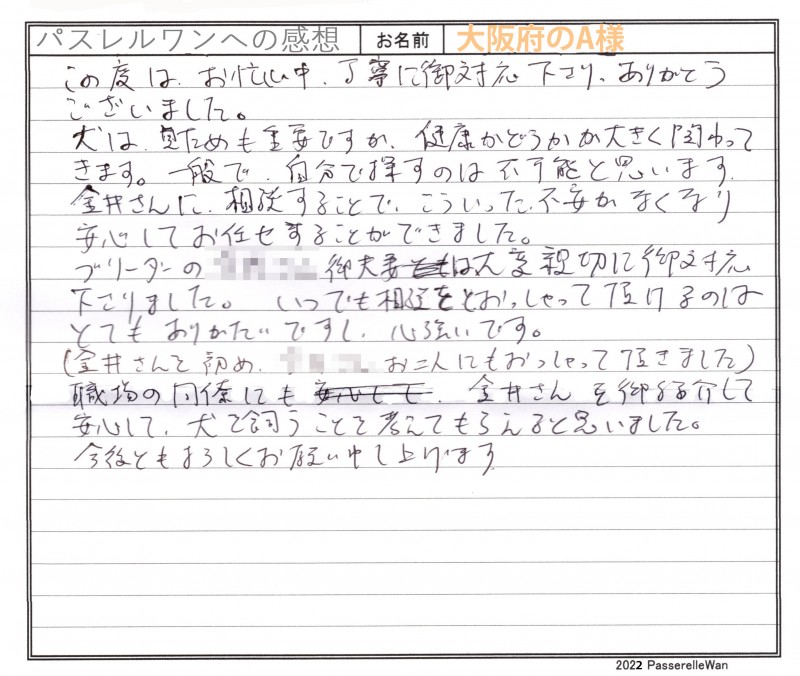 パスレルワンへの感想 お名前 大阪府のA様
この度は、お忙し中、丁寧に御対応下さり、ありがとう
ございました。
犬は、見ためも重要ですが、健康かどうかが大きく関わって
きます。一般で、自分で探すのは不可能と思います。
金井さんに、相談することで、こういった不安がなくなり
安心してお任せすることができました。
ブリーダーの 御夫妻は大変親切に御対応
下さりました。いつでも相談をとおっしゃって頂けるのは
とてもありがたいですし、心強いです。
(金井さんを初め、 お二人にもおっしゃって頂きました)
職場の同僚にも 、金井さんを御紹介して
安心して、犬を飼うことを考えてもらえると思いました。
今後ともよろしくお願い申し上げます
2022 PasserelleWan